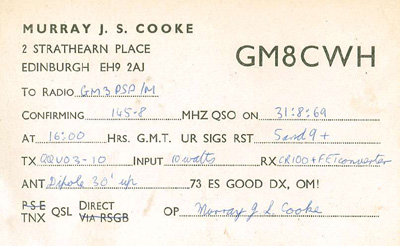 MURRAY J. S. COOKE
2 STRATHEARN PLACE
EDINBURGH EH9 2AJ
GM8CWH
TO RADIO GM3PSP/M
CONFIRMING 145.8 MHZ QSO ON 31:8:69
AT 16:00 HRS. G.M.T. UR SIGS RST 5 and 9+
TX QQV03-10 INPUT 10 watts RX CR100+FET converter
ANT Dipole 30' up 73 ES GOOD DX, OM!
PSE QSL DIRECT OP Murray J. S. Cooke
TNX VIA RSGB